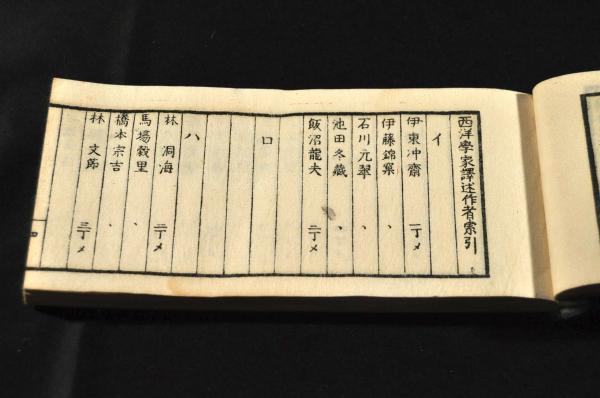 西洋學家譯述作者索引
イ
伊東冲齋 一丁メ
伊藤錦窠 、
石川元翠 、
池田冬藏 、
飯沼龍夫 二丁メ
ロ
ハ
林洞海 二丁メ
馬場轂里 、
橋本宗吉 、
林文節 三丁メ